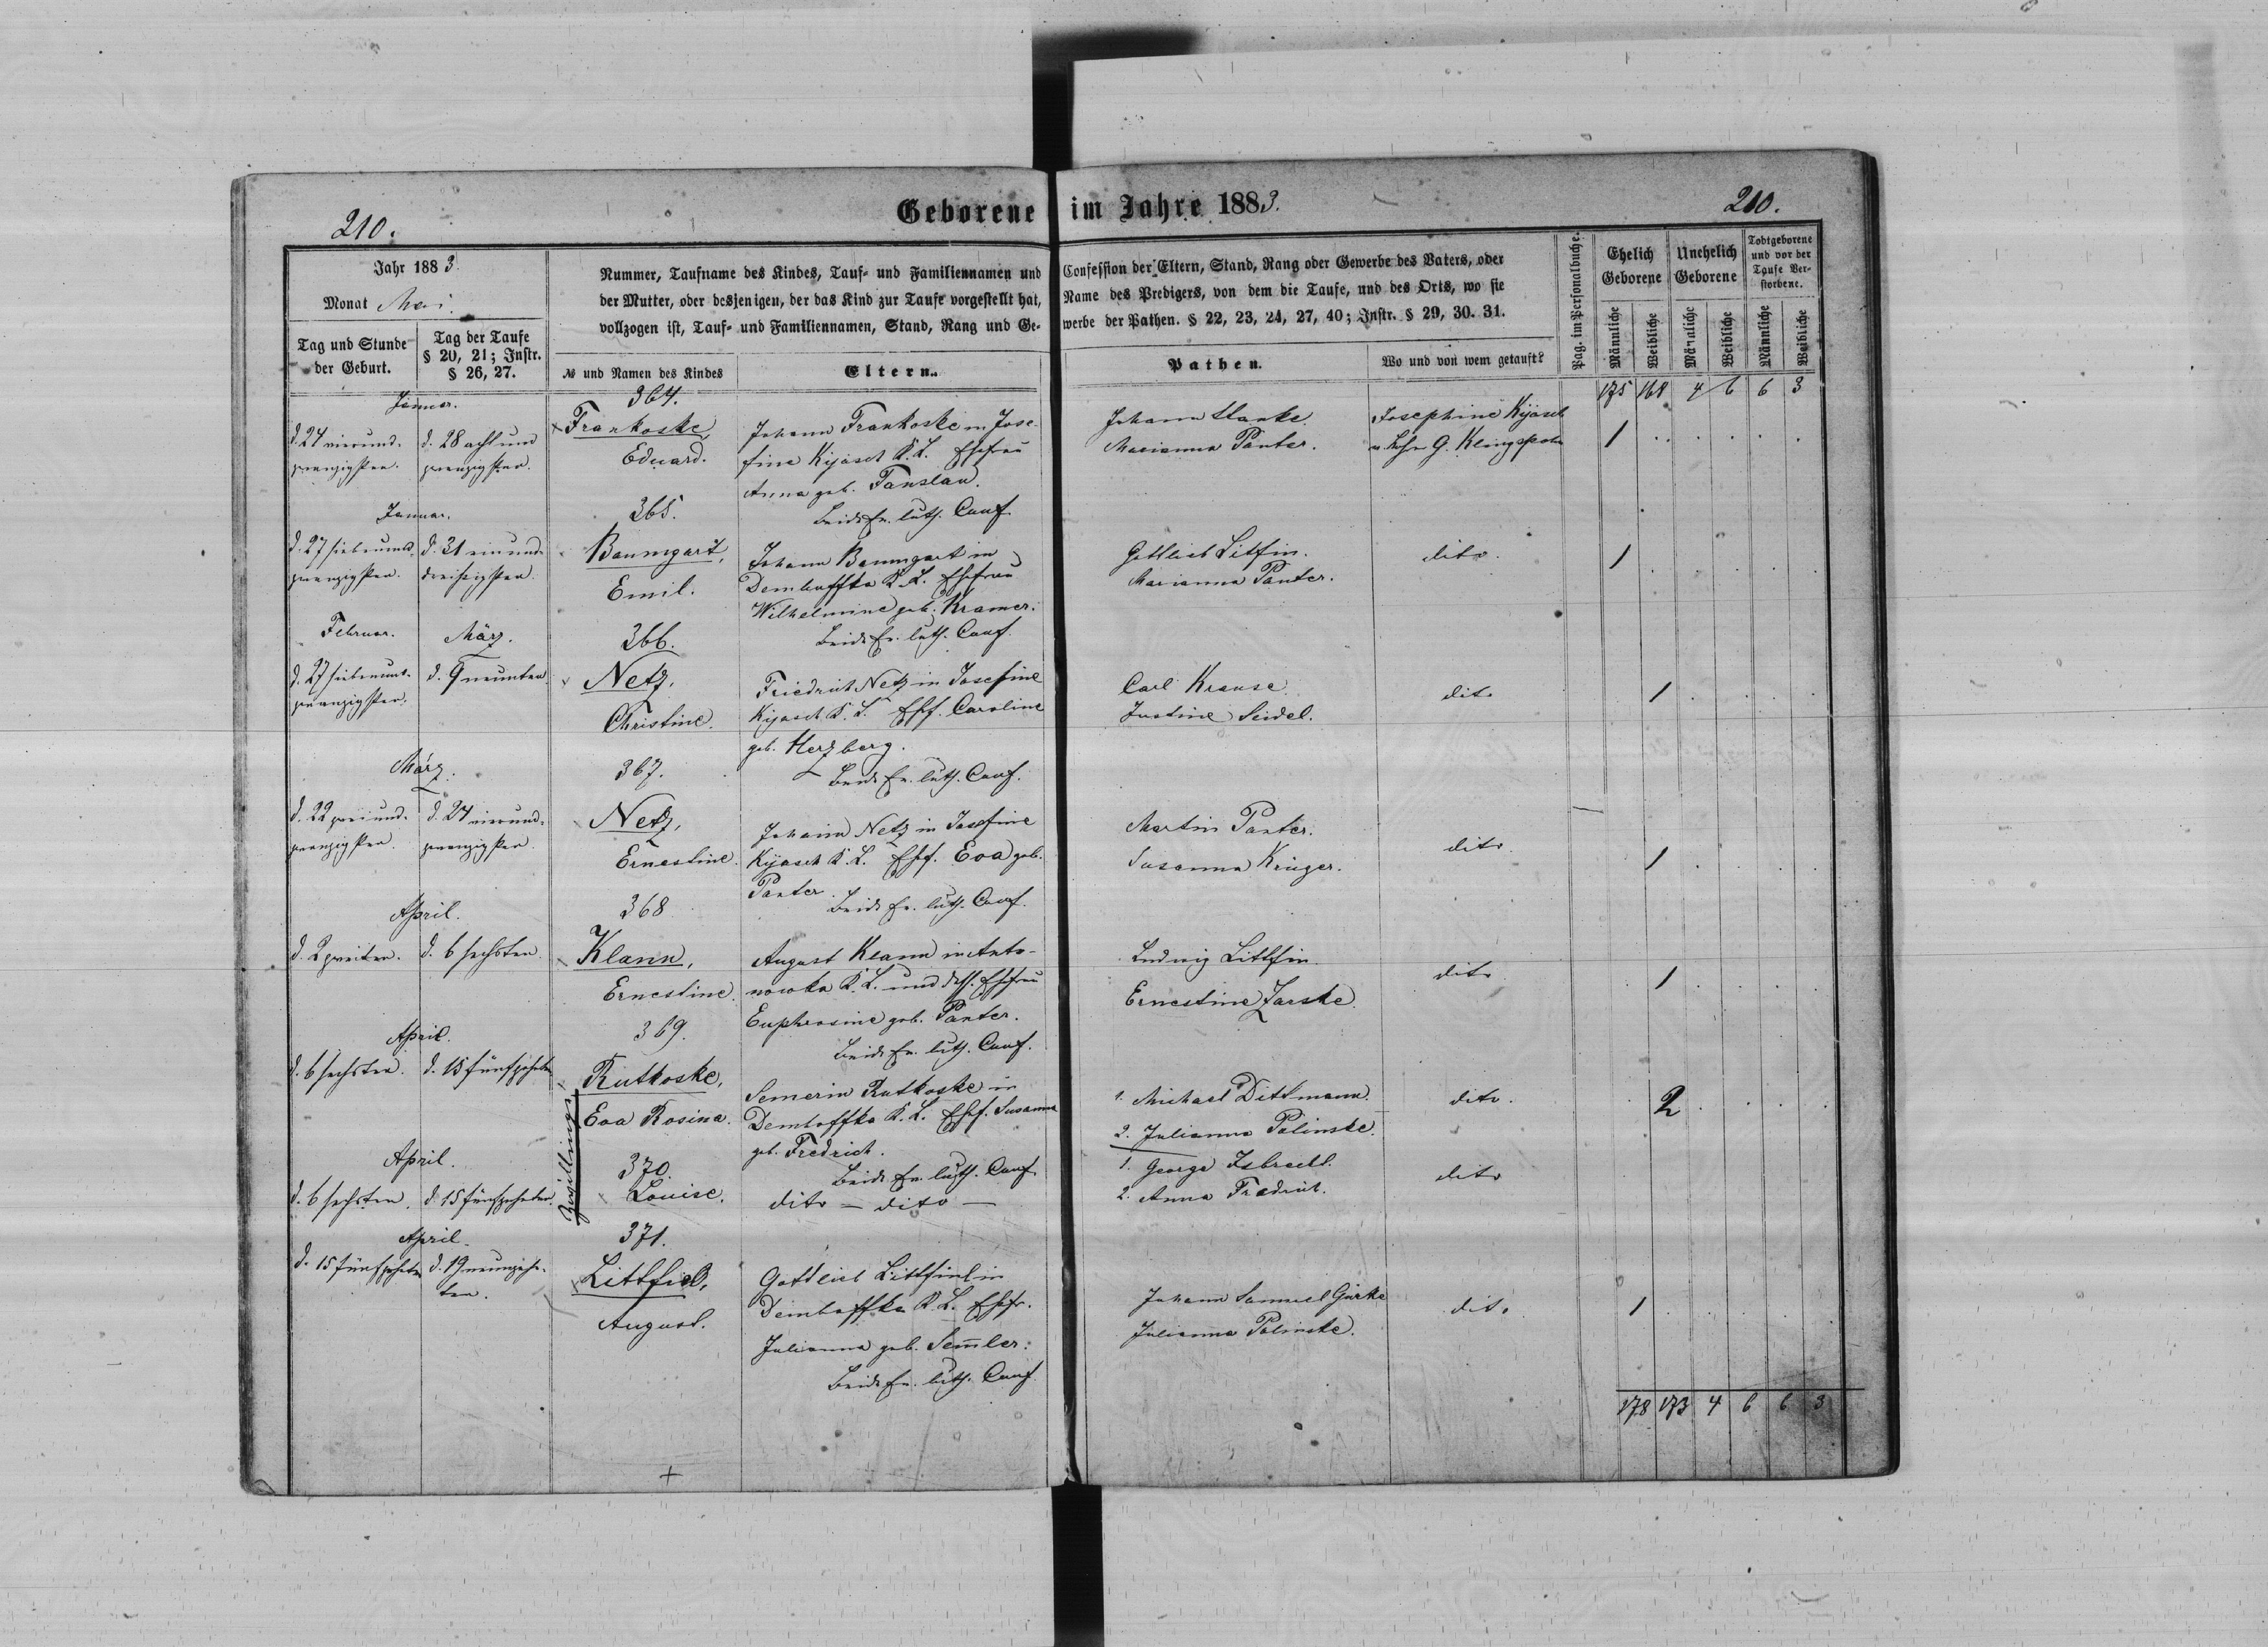 210.
Geborene im Jahre 1883.
210.
Jahr 1883
Monat Mai.
Tag und Stunde der Geburt.
Tag der Taufe § 20, 21; Instr. § 26, 27.
Nummer, Taufname des Kindes, Tauf- und Familiennamen und
der Mutter, oder desjenigen, der das Kind zur Taufe vorgestellt hat,
vollzogen ist, Tauf- und Familiennamen, Stand, Rang und Ge-
№ und Namen des Kindes
Eltern.
Confession der Eltern, Stand, Rang oder Gewerbe des Vaters, oder
Name des Predigers, von dem die Taufe, und des Orts, wo sie
werbe der Pathen. § 22, 23, 24, 27, 40; Instr. § 29, 30. 31.
Pathen.
Wo und von wem getauft?
Pag. im Personalbuche.
Ehelich Geborene
Unehelich Geborene
Todtgeborene und vor der Taufe Verstorbene.
Männliche
Weibliche
Männliche
Weibliche
Männliche
Weibliche
175 168 4 6 6 3
Januar.
364.
d. 24 vierund-
zwanzigsten.
d. 28 achtund
zwanzigsten.
Frankoske,
Eduard.
Johann Frankoske in Jose-
fine Kijasch K. L. Ehefrau
Anna geb. Tanslau.
Beide Ev. luth. Conf.
Johann Hanke
Marianna Panter.
Josephine Kijasch
v. Lehr G. Klingspohn
1
Januar.
365.
d. 27 siebenund-
zwanzigsten.
d. 31 einund-
dreißigsten.
Baumgart,
Emil.
Johann Baumgart in
Demboffka K. L. Ehefrau
Wilhelmine geb. Kramer.
Beide Ev. luth. Conf.
Gottlieb Litfin.
Marianna Panter.
dito.
1
Februar.
März.
366.
d. 27 siebenund-
zwanzigsten.
d. 9 neunten
Netz,
Christine.
Friedrich Netz in Josefine
Kijasch K. L. Ehf. Caroline
geb. Herzberg.
Beide Ev. luth. Conf.
Carl Krause.
Justine Seidel.
dito
1
März.
367.
d. 22 zweiund-
zwanzigsten.
d. 24 vierund-
zwanzigsten
Netz,
Ernestine.
Johann Netz in Josefine
Kijasch K. L. Ehf. Eva geb.
Panter
Beide Ev. luth. Conf.
Martin Panter.
Susanna Krüger.
dito.
1
April.
368
d. 2 zweiten.
d. 6 sechsten
Klann,
Ernestine.
August Klann in Anto-
nowka K. L. und dess. Ehefrau
Euphrosine geb. Panter.
Beide Ev. luth. Conf.
Ludwig Littfin
Ernestine Zarske
dito
1
April.
369.
d. 6 sechsten.
d. 15 fünfzehnten
Zwillinge
Rutkoske,
Eva Rosina.
Semerin Rutkoske in
Demboffka K. L. Ehf. Susanna
geb. Fredrich.
Beide Ev. luth. Conf.
1. Michael Dittmann.
2. Julianna Polinske.
dito.
2
April.
370.
d. 6 sechsten.
d. 15 fünfzehnten
Louise.
dito — dito —
1. George
2. Anna Fredrich.
dito
April.
371.
d. 15 fünfzehnten
d. 19 neunzehn-
ten.
August.
Gottlieb in
Demboffka K. L. Ehfr.
Julianna geb. Sem̄ler:
Beide Ev. luth. Conf.
Johann Samuel Gürke
Julianna Polinske.
dito
1
178 173 4 6 6 3